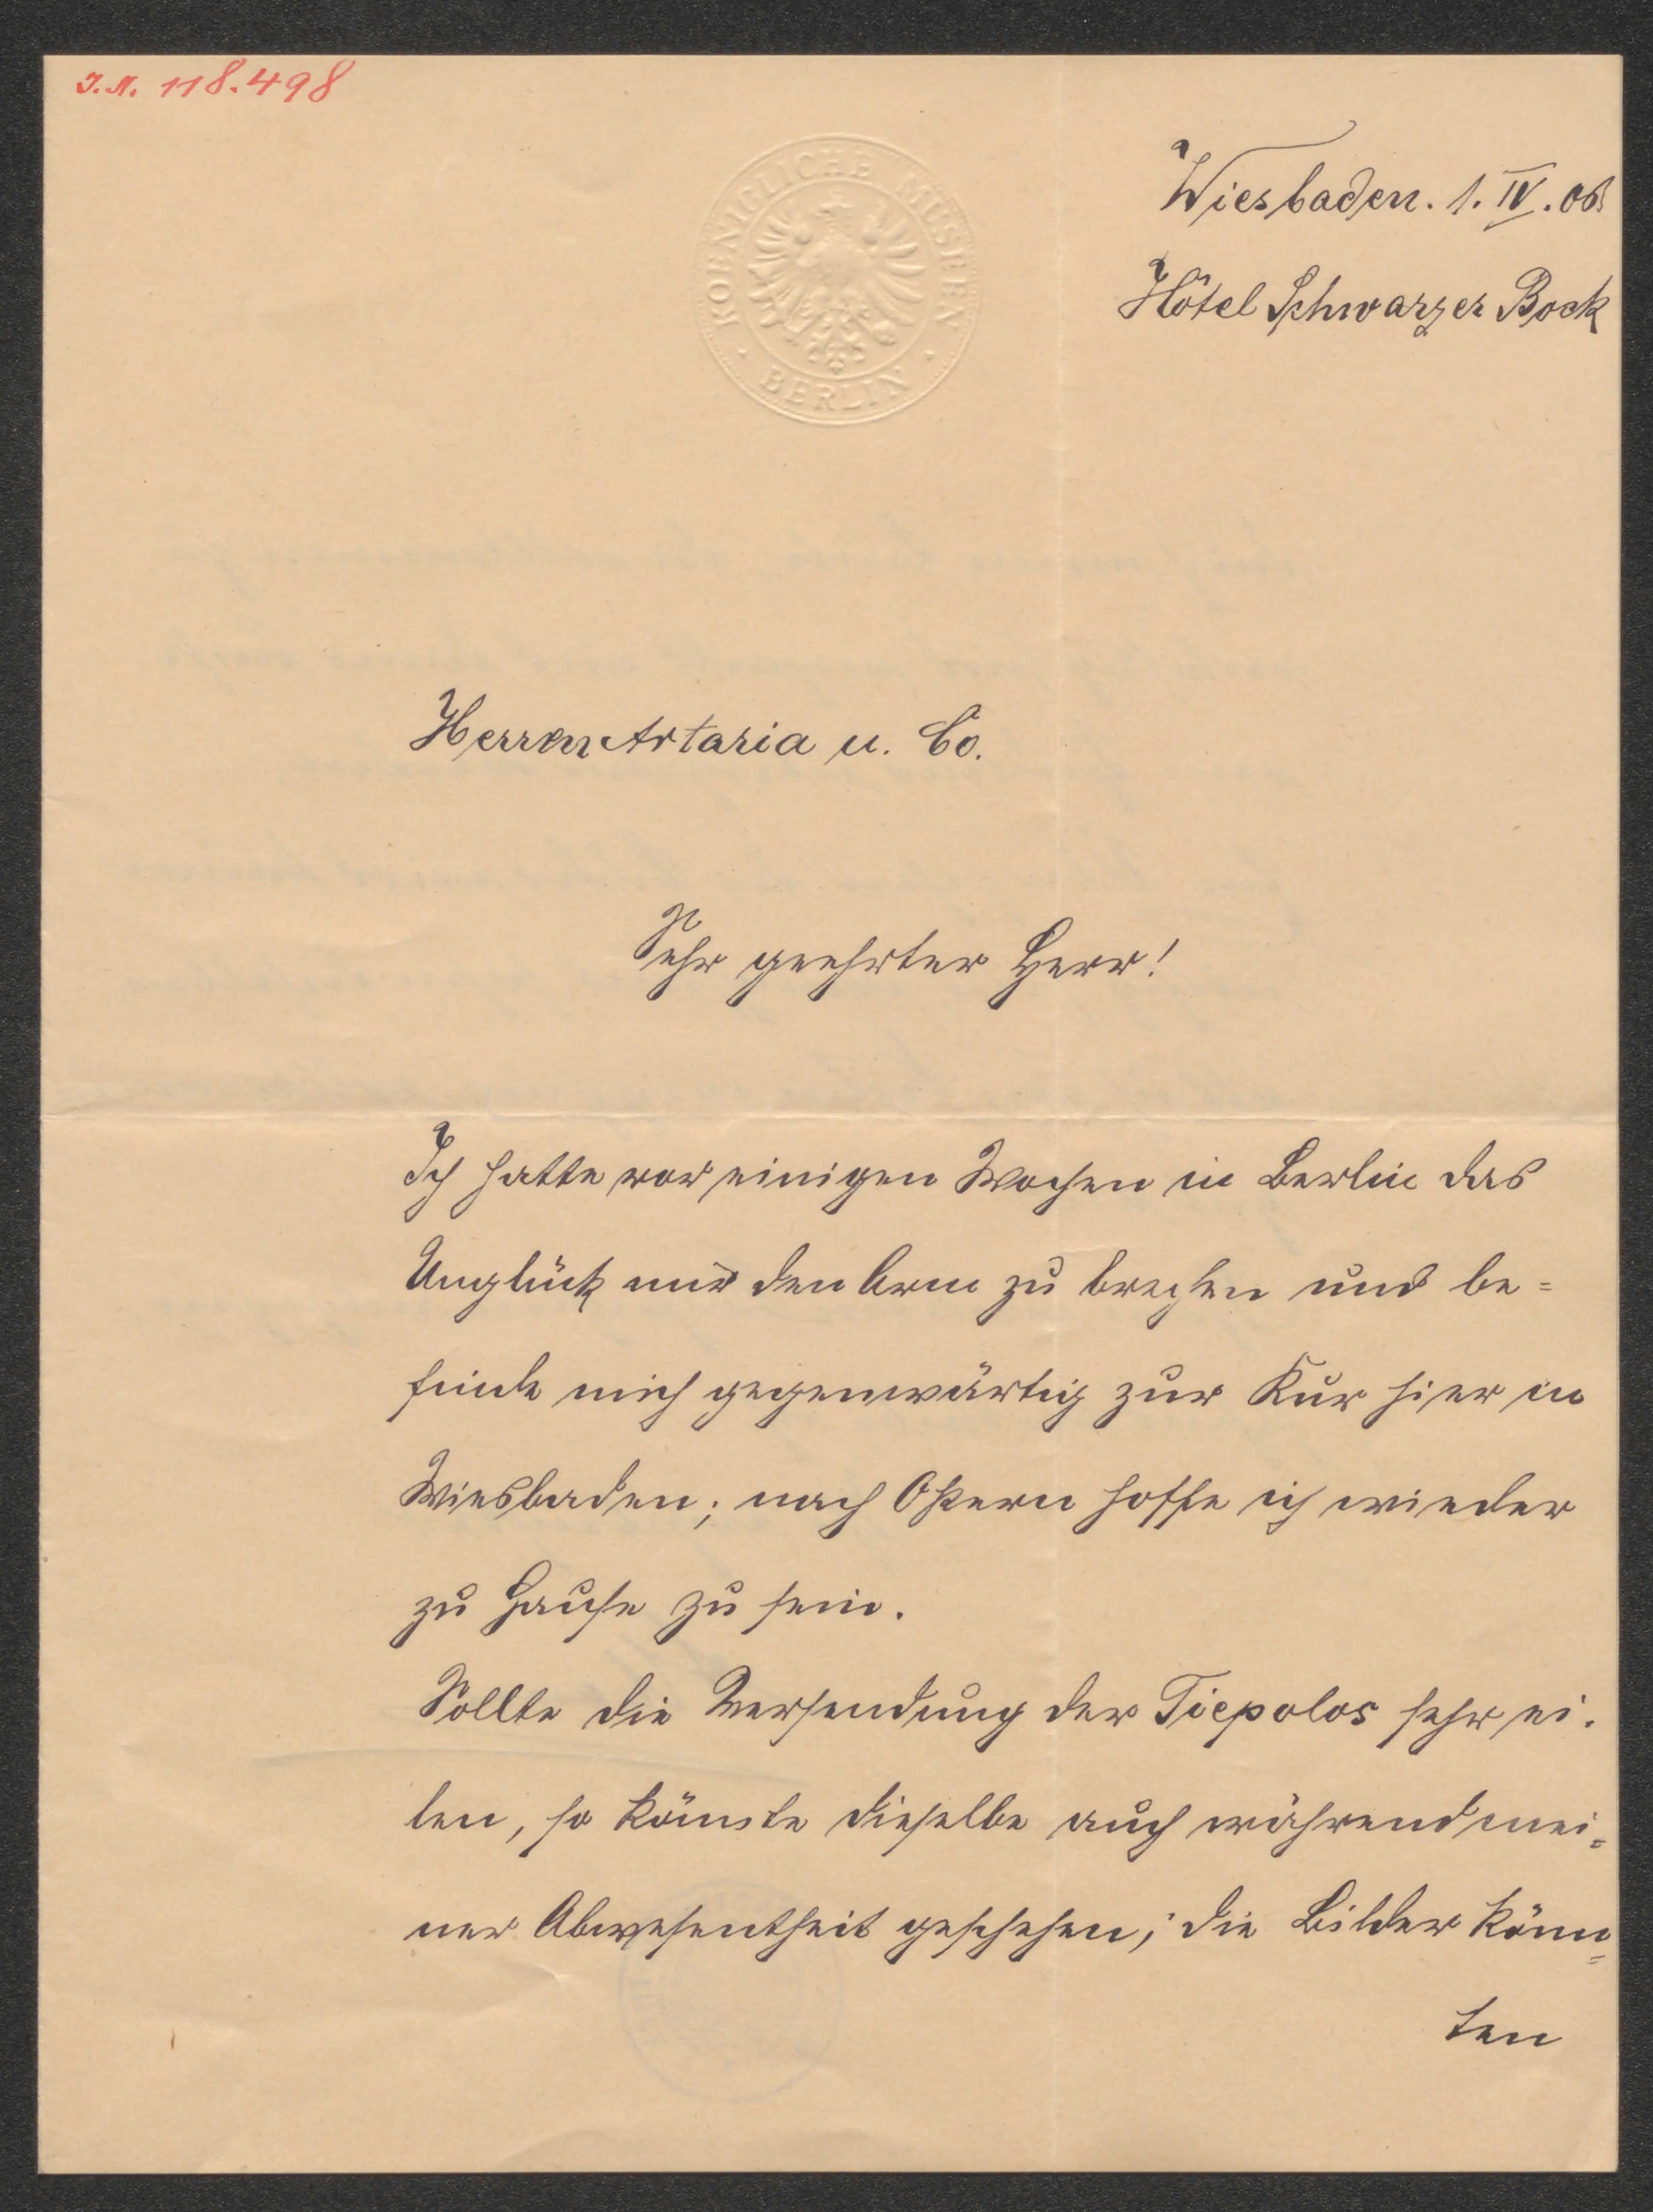 J.N. 118.498
KOENIGLICHE MUSEEN
BERLIN
Wiesbaden. 1. IV. 06
Hôtel Schwarzer Bock
Herren Artaria u. Co.
Sehr geehrter Herr!
Ich hatte vor einigen Wochen in Berlin das
Unglück mir den Arm zu brechen und be=
finde mich gegenwärtig zur Kur hier in
Wiesbaden; nach Ostern hoffe ich wieder
zu Hause zu sein.
Sollte die Versendung der Tiepolos sehr ei-
len, so könnte dieselbe auch während mei=
ner Abwesentheit geschehen; die Bilder könn=
ten